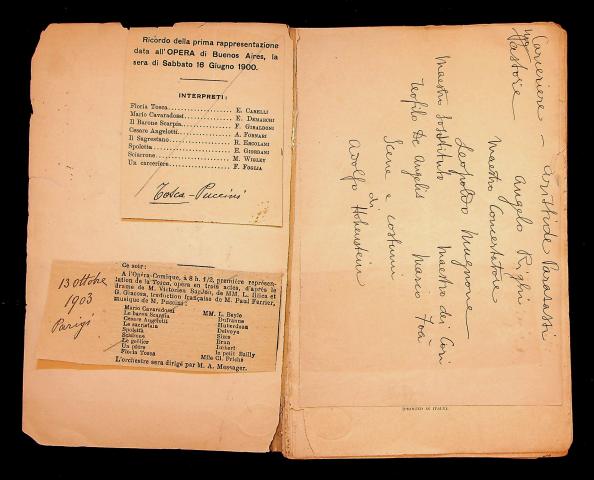 Ricordo della prima rappresentazione
data all'OPERA di Buenos Aires, la
sera di Sabbato 16 Giugno 1900.
INTERPRETI:
Floria Tosca E. CARELLI
Mario Cavaradossi E. DEMARCHI
Il Barone Scarpia E. GIRALDONI
Cesare Angelotti A. FORNARI
Il Sagrestano R. ERCOLANI
Spoletta E. GIORDANI
Sciarrone M. WIGLEY
Un carceriere F. FOGLIA
Tosca - Puccini
13 ottobre
1903
Parigi
Ce soir:
A l'Opéra-Comique, à 8 h. 1/2, première représen-
tation de la Tosca, opéra en trois actes, d'après le
drame de M. Victorien Sardou, de MM. L. Illica et
G. Giacosa, traduction française de M. Paul Ferrier,
musique de M. Puccini:
Mario Cavaradossi MM. L. Beyle
Le baron Scarpia Dufranne
Cesare Angelotti Huberdeau
Le sacristain Delvoye
Spoletta
Sciarrone
Le geôlier Brun
Un pâtre le petit Bailly
Floria Tosca Mlle Cl. Friché
L'orchestre sera dirigé par M. A. Messager.
Carceriere - Aristide Parasassi
Un Pastore Angelo Righi
Maestro Concertatore
Leopoldo Mugnone
Maestro Sostituto Maestro dei Cori
Teofilo De Angelis Marco Foà
Scene e costumi
di
Adolfo Hohenstein
PRINTED IN ITALY